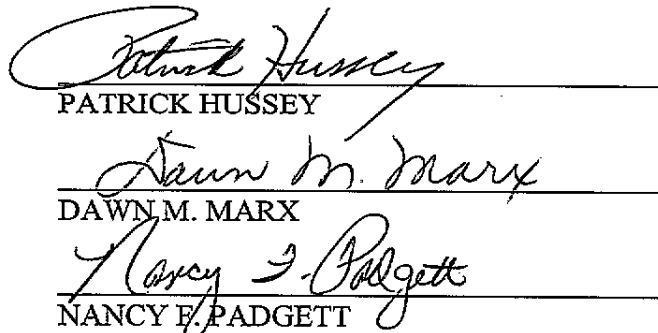 Patrick Hussey
PATRICK HUSSEY
Dawn M. Marx
DAWN M. MARX
Nancy F. Padgett
NANCY F. PADGETT